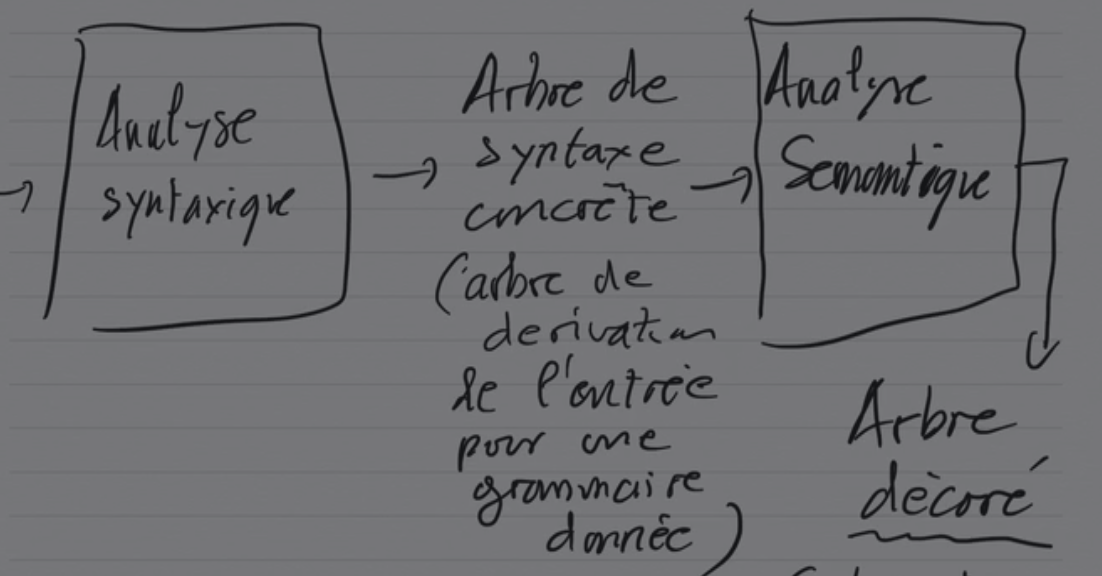 Analyse
syntaxique
→ Arbre de
syntaxe
concrète
(arbre de
derivation
de l'entrée
pour une
grammaire
donnée)
Analyse
Semantique
Arbre
décoré